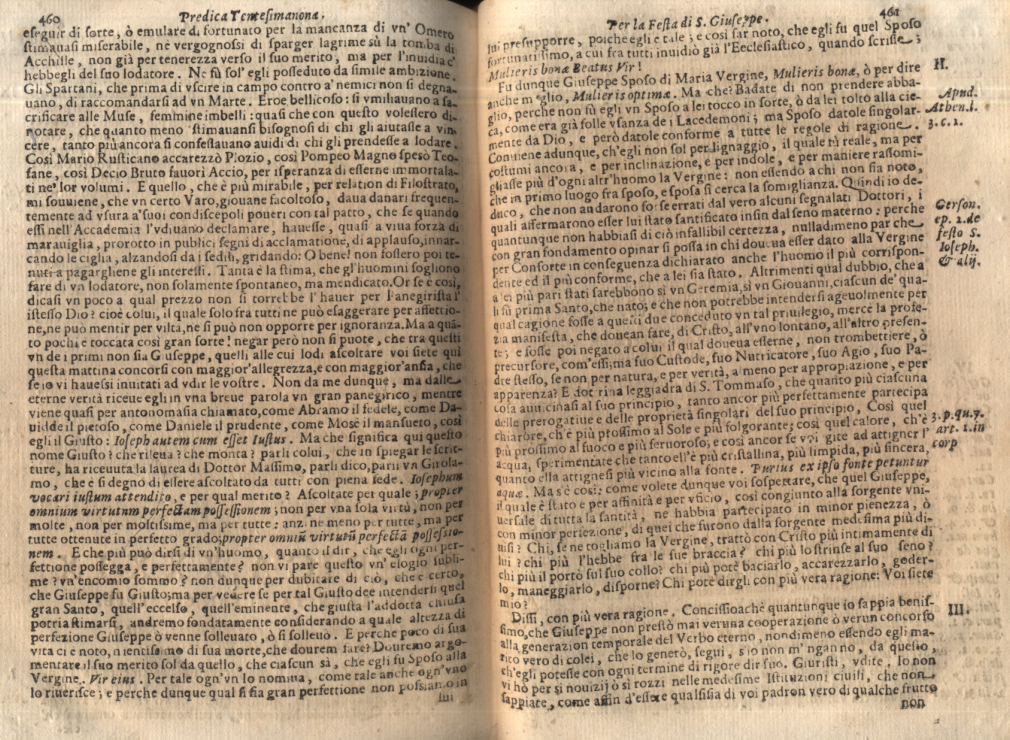 460
Predica Trentesimanona.
eseguir di sorte, ò emulare di fortunato per la mancanza di vn' Omero
stimauasi miserabile, ne vergognossi di sparger lagrime sù la tomba di
Acchille, non già per tenerezza verso il suo merito, ma per l'inuidia c'
hebbegli del suo lodatore. Ne fù sol' egli posseduto da simile ambizione.
Gli Spartani, che prima di vscire in campo contro a' nemici non si degna-
uano, di raccomandarsi ad vn Marte. Eroe bellicoso: si vmiliauano a sa-
crificare alle Muse, femmine imbelli: quasi che con questo volessero di-
notare, che quanto meno stimauansi bisognosi di chi gli aiutasse a vin
cere, tanto più ancora si confessauano auidi di chi gli prendesse a lodare.
Così Mario Rusticano accarezzò Plozio, così Pompeo Magno sperò Teo-
fane, così Decio Bruto fauorì Accio, per isperanza di esserne immortala-
ti ne' lor volumi. E quello, che è più mirabile, per relation di Filostrato,
mi souuiene, ch'vn certo Varo, giouane facoltoso, daua danari frequen-
temente ad vsura a' suoi condiscepoli poueri con tal patto, che se quando
essi nell'Accademia l'vdiuano declamare, hauesse, quasi a viua forza di
marauiglia, prorotto in publici segni di acclamatione, di applauso, innar-
cando le ciglia, alzandosi da i sedili, gridando: O bene! non fossero poi te-
nuti a pagargliene gli interessi. Tanta è la stima, che gl'huomini sogliono
fare di vn lodatore, non solamente spontaneo, ma mendicato. Or se è così,
dicasi vn poco a qual prezzo non si torrebbe l'hauer per Panegirista l'
istesso Dio? cioè colui, il quale solo fra tutti ne può esaggerare per affettio-
ne, ne può mentir per viltà, ne si può non opporre per ignoranza. Ma a quã-
to pochi è toccata così gran sorte! negar però non si puote, che tra questi
vn de i primi non sia Giuseppe, quelli alle cui lodi ascoltare voi siete qui
questa mattina concorsi con maggior'allegrezza, e con maggior'ansia, che
se io vi hauessi inuitati ad vdir le vostre. Non da me dunque, ma dalle
eterne verità riceue egli in vna breue parola vn gran panegirico, mentre
viene quasi per antonomasia chiamato, come Abramo il fedele, come Da-
uidde il pietoso, come Daniele il prudente, come Mosè il mansueto, così
egli il Giusto: Ioseph autem cum esset Iustus. Ma che significa qui questo
nome Giusto? che rileua? che monta? parli colui, che in spiegar le scrit-
ture, ha riceuuta la laurea di Dottor Massimo, parli dico, parli vn Girola-
mo, che è sì degno di essere ascoltato da tutti con piena fede. Iosephum
vocari iustum attendito, e per qual merito? Ascoltate per quale; propter
omnium virtutum perfectam possessionem; non per vna sola virtù, non per
molte, non per moltissime, ma per tutte: anzi ne meno per tutte, ma per
tutte ottenute in perfetto grado; propter omniũ virtutũ perfectã possessio-
nem. E che più può dirsi di vn'huomo, quanto il dir, che egli ogni per-
fettione possegga, e perfettamente? non vi pare questo vn' elogio subli-
me? vn'encomio sommo? non dunque per dubitare di ciò, che è certo,
che Giuseppe fu Giusto; ma per vedere se per tal Giusto dee intenderli quel
gran Santo, quell'eccelso, quell'eminente, che giusta l'addotta chiusa
potria stimarsi, andremo fondatamente considerando a quale altezza di
perfezione Giuseppe ò venne solleuato, ò si solleuò. E perche poco di sua
vita ci è noto, nientissimo di sua morte, che dourem fare? Douremo argo-
mentare il suo merito sol da quello, che ciascun sà, che egli fu Sposo alla
Vergine. Vir eius. Per tale ogn'vn lo nomina, come tale anche ogn'vno
lo riuerisce; e perche dunque qual si sia gran perfettione non possiamo in
lui
461
Per la Festa di S. Giuseppe.
lui presupporre, poiche egli è tale; e così far noto, che egli fu quel Sposo
fortunatissimo, a cui fra tutti inuidiò già l'Ecclesiastico, quando scrisse;
Mulieris bonæ Beatus Vir!
II.
Fu dunque Giuseppe Sposo di Maria Vergine, Mulieris bonæ, ò per dire
anche meglio, Mulieris optimæ. Ma che? Badate di non prendere abba-
glio, perche non fù egli vn Sposo a lei tocco in sorte, ò da lei tolto alla cie-
Apud.
Athen. l.
3. c. 2.
ca, come era già folle vsanza de i Lacedemoni; ma Sposo datole singolar-
mente da Dio, e però datole conforme a tutte le regole di ragione.
Conuiene adunque, ch'egli non sol per lignaggio, il quale fù reale, ma per
costumi ancora, e per inclinazione, e per indole, e per maniere rassomi-
gliasse più d'ogni altr'huomo la Vergine: non essendo a chi non sia noto,
che in primo luogo fra sposo, e sposa si cerca la somiglianza. Quindi io de-
duco, che non andarono forse errati dal vero alcuni segnalati Dottori, i
Gerson.
ep. 2. de
festo S.
Ioseph.
& alij.
quali affermarono esser lui stato santificato infin dal seno materno: perche
quantunque non habbiasi di ciò infallibil certezza, nulladimeno par che
con gran fondamento opinar si possa in chi doueua esser dato alla Vergine
per Consorte in conseguenza dichiarato anche l'huomo il più corrispon-
dente ed il più conforme, che a lei sia stato. Altrimenti qual dubbio, che a
a lei più pari stati sarebbono sì vn Geremia, sì vn Giouanni, ciascun de' qua-
li fù prima Santo, che nato; e che non potrebbe intendersi ageuolmente per
qual cagione fosse a questi due conceduto vn tal priuilegio, mercè la profe-
zia manifesta, che douean fare, di Cristo, all'vno lontano, all'altro presen-
te; e fosse poi negato a colui il qual doueua esserne, non trombettiere, ò
precursore, com'essi; ma suo Custode, suo Nutricatore, suo Agio, suo Pa-
dre stesso, se non per natura, e per verità, a meno per appropiazione, e per
apparenza? E dottrina leggiadra di S. Tommaso, che quanto più ciascuna
cosa auuicinasi al suo principio, tanto ancor più perfettamente partecipa
delle prerogatiue e delle proprietà singolari del suo principio. Così quel
3. p. qu. 7.
art. 1. in
corp
chiarore, ch'è più prossimo al Sole è più folgorante; così quel calore, ch'è
più prossimo al fuoco è più feruoroso; e così ancor se voi gite ad attigner l'
acqua, sperimentate che tanto ell'è più cristallina, più limpida, più sincera,
quanto ella attignesi più vicino alla fonte. Purius ex ipso fonte petuntur
aquæ. Ma s'è così: come volete dunque voi sospettare, che quel Giuseppe,
il quale è stato e per affinità e per vficio, così congiunto alla sorgente vni-
uersale di tutta la santità, ne habbia partecipato in minor pienezza, ò
con minor perfezione, di quei che furono dalla sorgente medesima più di-
uisi? Chi, se ne togliamo la Vergine, trattò con Cristo più intimamente di
lui? chi più l'hebbe fra le sue braccia? chi più lo strinse al suo seno?
chi più il portò sul suo collo? chi più potè baciarlo, accarezzarlo, goder-
lo, maneggiarlo, disporne? Chi potè dirgli con più vera ragione: Voi siete
mio?
III.
Dissi, con più vera ragione. Conciossiachè quantunque io sappia benis-
simo, che Giuseppe non prestò mai veruna cooperazione ò verun concorso
alla generazion temporale del Verbo eterno, nondimeno essendo egli ma-
rito vero di colei, che lo generò, seguì, s'io non m'nganno, da questo,
ch'egli potesse con ogni termine di rigore dir suo. Giuristi, vdite. Io non
vi hò per sì nouizij ò sì rozzi nelle medesime Istituzioni ciuili, che non
sappiate, come affin d'essere qualsisia di voi padron vero di qualche frutto
non